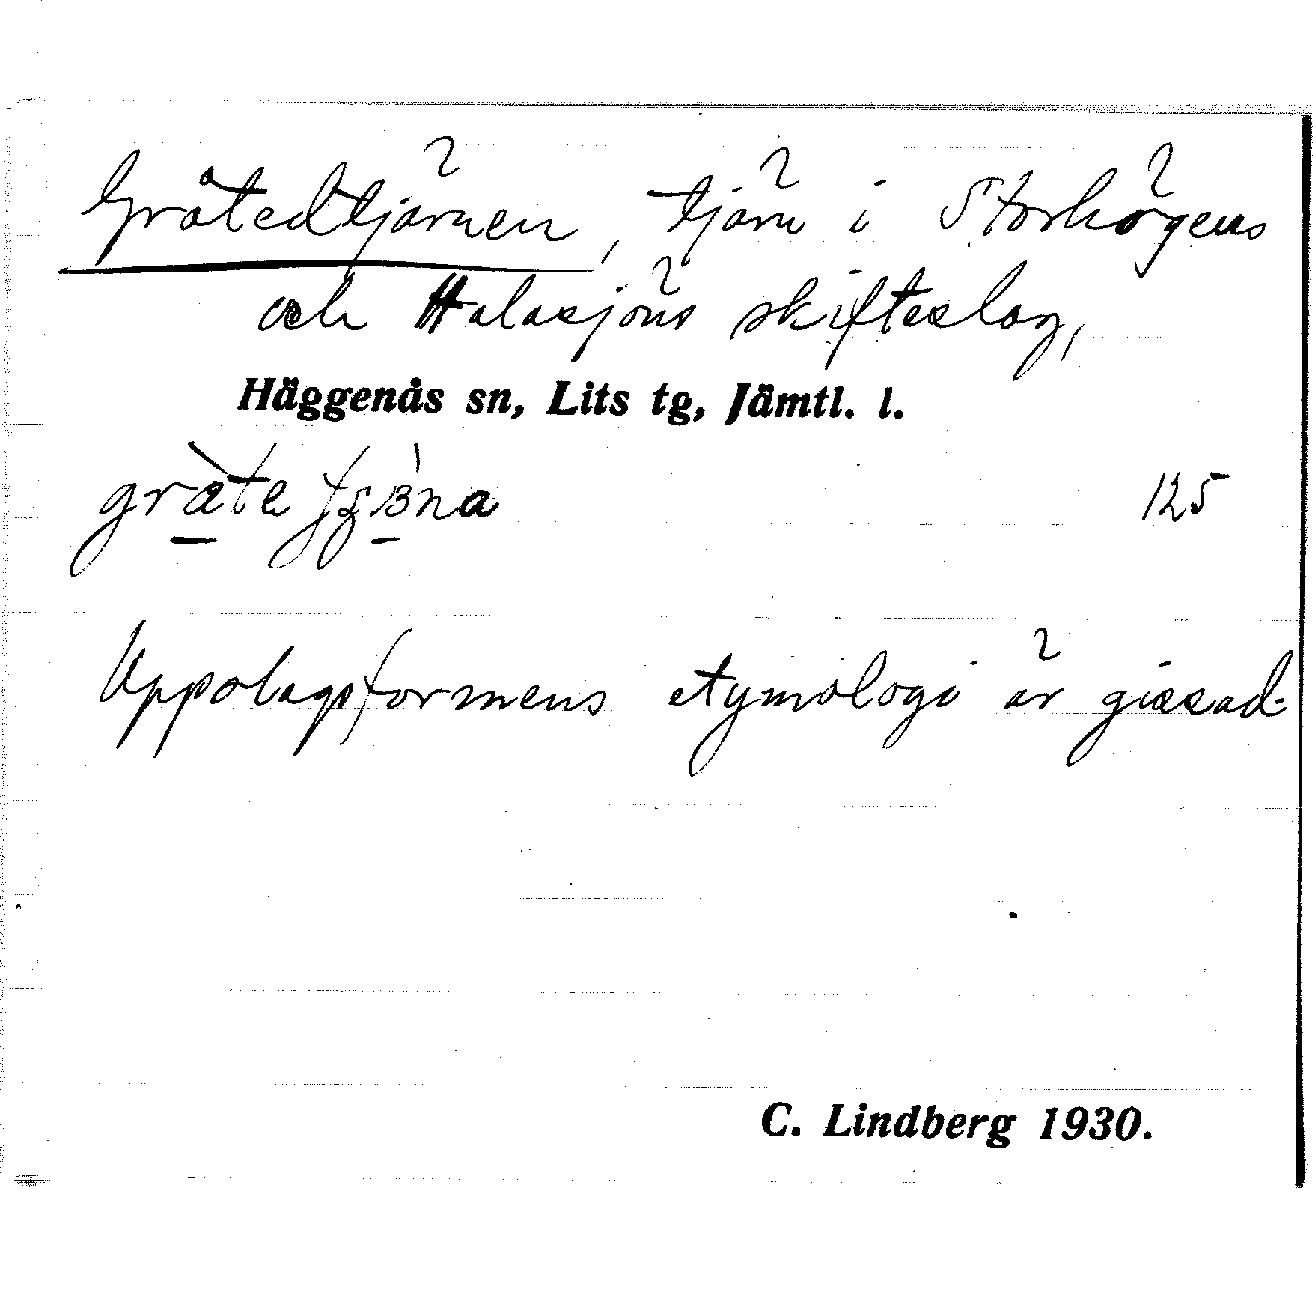 Gråtedtjärnen, tjärn i Storhögens
och Halasjöns skifteslag,
Häggenås sn, Lits tg, Jämtl. l.
125
Uppslagsformens etymologi är gissad.
C. Lindberg 1930.